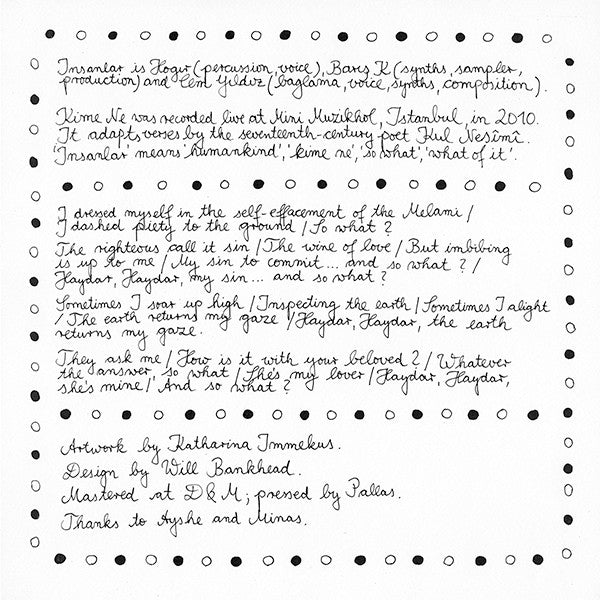 Insanlar is Hogir (percussion, voice), Barış K (synths, sampler,
production) and Cem Yıldız (bağlama, voice, synths, composition).
Kime Ne was recorded live at Mini Muzikhol, Istanbul, in 2010.
It adapts verses by the seventeenth-century poet Kul Nesîmî.
'Insanlar' means 'humankind', 'kime ne', 'so what', 'what of it'.
I dressed myself in the self-effacement of the Melami /
I dashed piety to the ground / So what ?
The righteous call it sin / The wine of love / But imbibing
is up to me / My sin to commit ... and so what ? /
Haydar, Haydar, my sin ... and so what ?
Sometimes I soar up high / Inspecting the earth / Sometimes I alight
/ The earth returns my gaze / Haydar, Haydar, the earth
returns my gaze.
They ask me / How is it with your beloved ? / Whatever
the answer, so what / She's my lover / Haydar, Haydar,
she's mine / And so what ?
Artwork by Katharina Immekus.
Design by Will Bankhead.
Mastered at D & M ; pressed by Pallas.
Thanks to Ayshe and Minas.